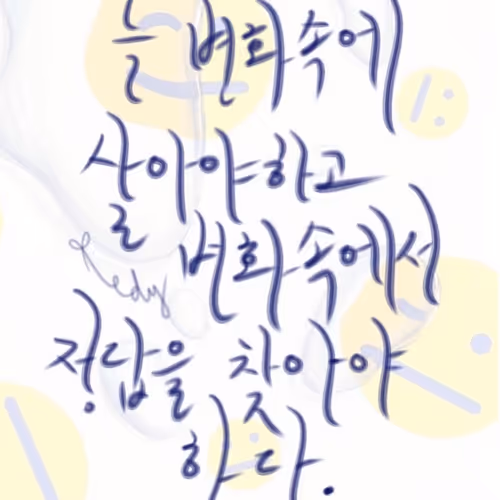 늘 변화속에
살아야하고
변화속에서
Redy
정답을 찾아야
하다.